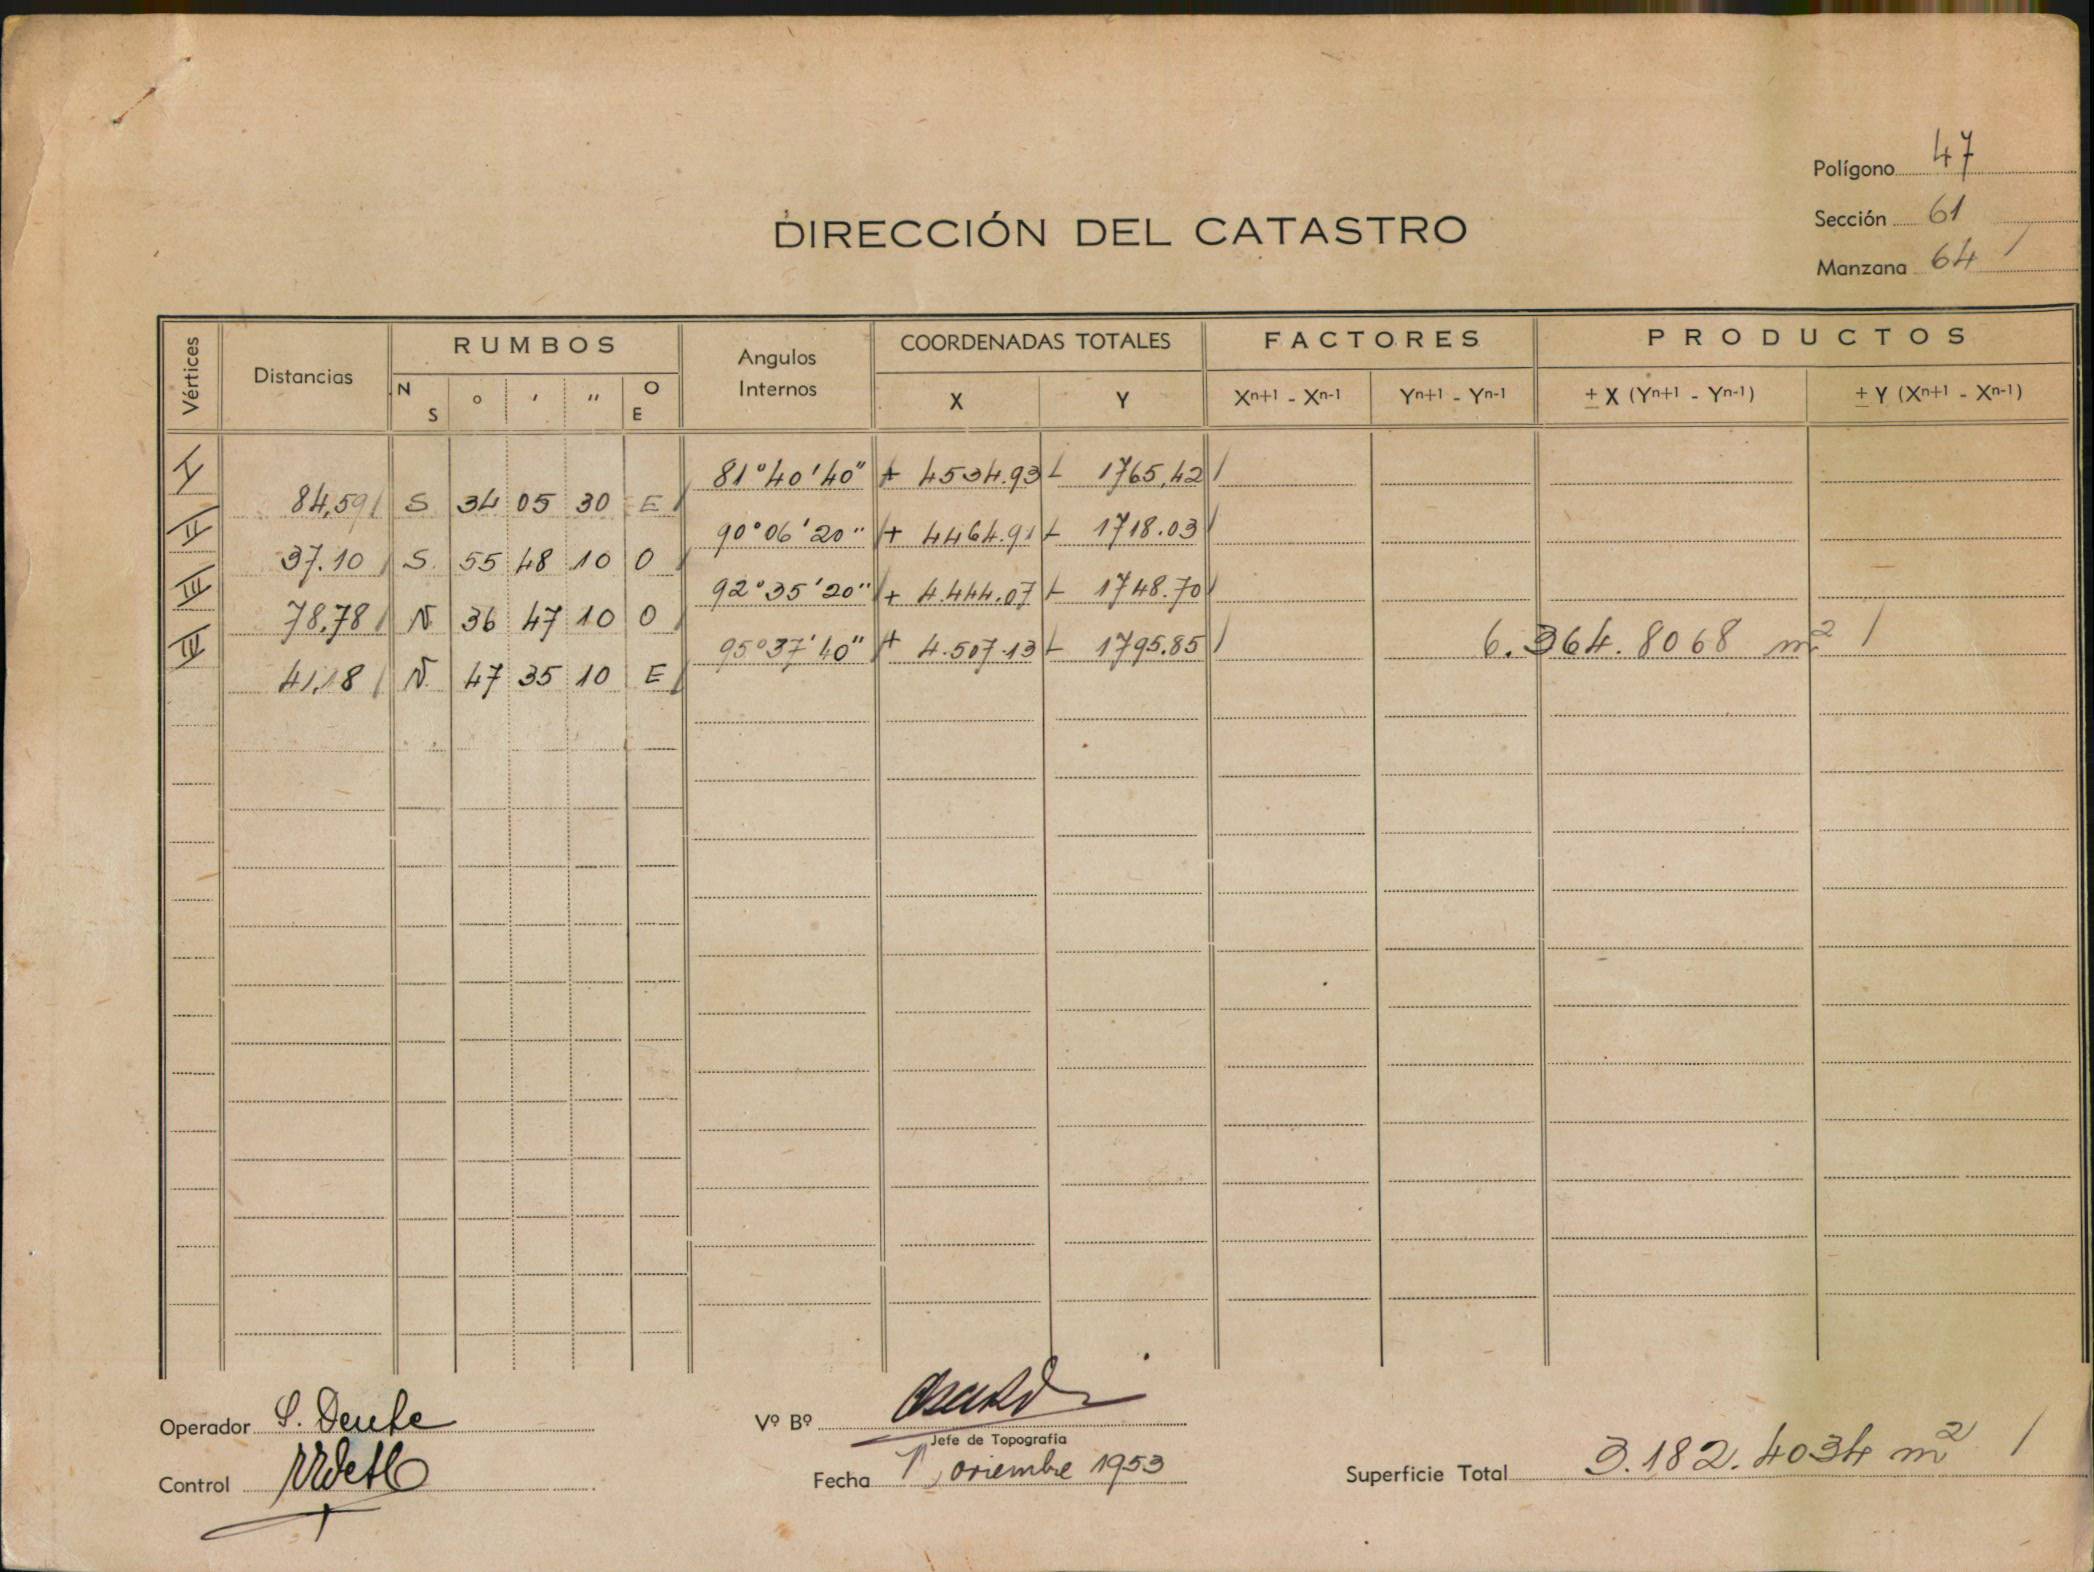 Polígono 47
Sección 61
Manzana 64
DIRECCIÓN DEL CATASTRO
Vértices Distancias RUMBOS Angulos Internos COORDENADAS TOTALES FACTORES PRODUCTOS
N S ° ' " O E X Y Xn+1 - Xn-1 Yn+1 - Yn-1 ± X (Yn+1 - Yn-1) ± Y (Xn+1 - Xn-1)
I 81°40'40" + 4534.93 - 1765,42
84,59 S 34 05 30 E
II 90°06'20" + 4464.91 - 1718.03
37.10 S. 55 48 10 O
III 92°35'20" + 4.444.07 - 1748.70
78,78 N 36 47 10 O
IIII 95°37'40" + 4.507.13 - 1795.85 6.364.8068 m²
41,18 N. 47 35 10 E
Operador S. Deule
Vº Bº
Jefe de Topografía
Control
Fecha Noviembre 1953
Superficie Total 3.182.4034 m²